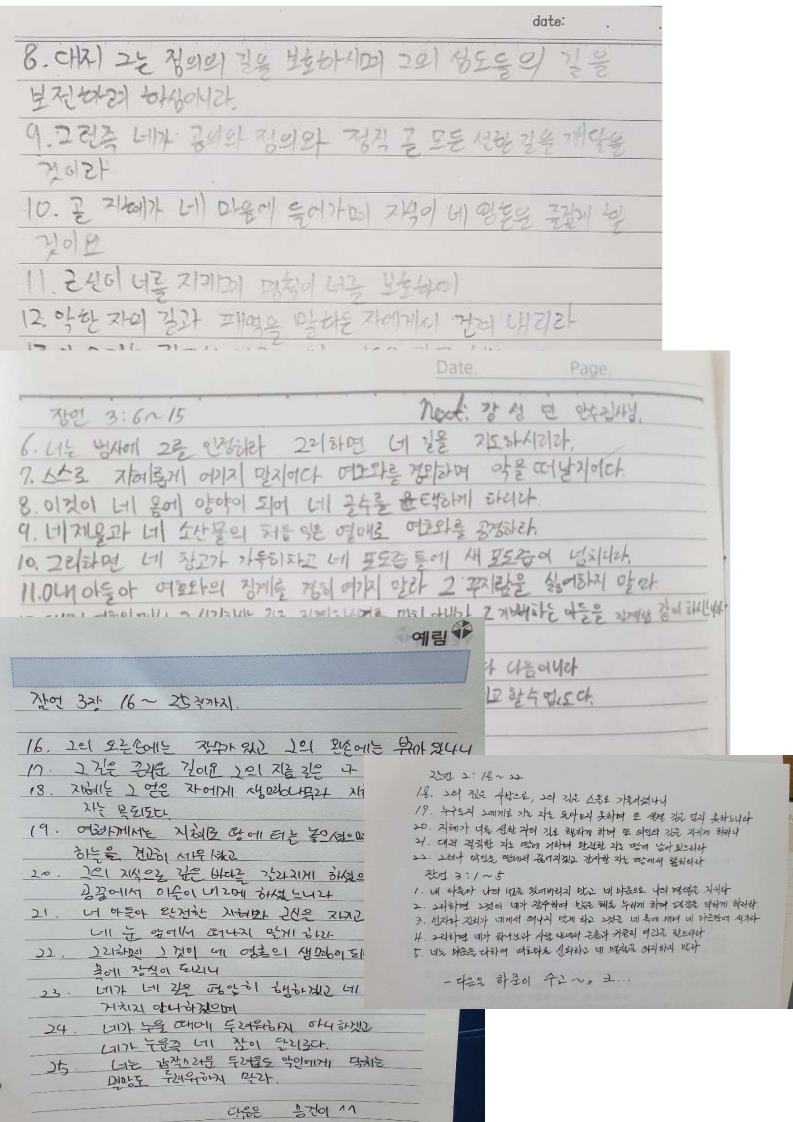 date: . .
8. 대저 그는 정의의 길을 보호하시며 그의 성도들의 길을
보전하려 하심이니라.
9. 그런즉 네가 공의와 정의와 정직 곧 모든 선한 길을 깨달을
것이라
10. 곧 지혜가 네 마음에 들어가며 지식이 네 영혼을 즐겁게 할
것이요
11. 근신이 너를 지키며 명철이 너를 보호하여
12. 악한 자의 길과 패역을 말하는 자에게서 건져 내리라
Date. Page.
잠언 3:6~15 Next: 강성 안수집사님.
6. 너는 범사에 그를 인정하라 그리하면 네 길을 지도하시리라.
7. 스스로 지혜롭게 여기지 말지어다 여호와를 경외하며 악을 떠날지어다.
8. 이것이 네 몸에 양약이 되어 네 골수를 윤택하게 하리라.
9. 네 재물과 네 소산물의 처음 익은 열매로 여호와를 공경하라.
10. 그리하면 네 창고가 가득히 차고 네 포도즙 틀에 새 포도즙이 넘치리라.
11. 내 아들아 여호와의 징계를 경히 여기지 말라 그 꾸지람을 싫어하지 말라
그 기뻐하는 아들을 징계함 같이 하시느니라
다 나음이니라
할 수 없도다.
예림
잠언 3장 16~25절까지.
16. 그의 오른손에는 장수가 있고 그의 왼손에는 부귀가 있나니
17. 그 길은 즐거운 길이요 그의 지름길은 다
18. 지혜는 그 얻은 자에게 생명나무라 지
자는 복되도다.
19. 여호와께서는 지혜로 땅에 터를 놓으셨으며
하늘을 견고히 세우셨고
20. 그의 지식으로 깊은 바다를 갈라지게 하셨으
공중에서 이슬이 내리게 하셨느니라
21. 내 아들아 완전한 지혜와 근신을 지키고
네 눈 앞에서 떠나지 말게 하라
22. 그리하면 그것이 네 영혼의 생명이 되
목에 장식이 되리니
23. 네가 네 길을 평안히 행하겠고 네
거치지 아니하겠으며
24. 네가 누울 때에 두려워하지 아니하겠고
네가 누운즉 네 잠이 달리로다.
25. 너는 갑작스러운 두려움도 악인에게 닥치는
멸망도 두려워하지 말라.
다음은 승건이 ^^
잠언 2:18~22
18. 그의 집은 사망으로, 그의 길은 스올로 기울어졌나니
19. 누구든지 그에게로 가는 자는 돌아오지 못하며 또 생명 길을 얻지 못하느니라
20. 지혜가 너를 선한 자의 길로 행하게 하며 또 의인의 길을 지키게 하리니
21. 대저 정직한 자는 땅에 거하며 완전한 자는 땅에 남아 있으리라
22. 그러나 악인은 땅에서 끊어지겠고 간사한 자는 땅에서 뽑히리라
잠언 3:1~5
1. 내 아들아 나의 법을 잊어버리지 말고 네 마음으로 나의 명령을 지키라
2. 그리하면 그것이 네가 장수하여 많은 해를 누리게 하며 평강을 더하게 하리라.
3. 인자와 진리가 네게서 떠나지 말게 하고 그것을 네 목에 매며 네 마음판에 새기라
4. 그리하면 네가 하나님과 사람 앞에서 은총과 귀중히 여김을 받으리라
5. 너는 마음을 다하여 여호와를 신뢰하고 네 명철을 의지하지 말라
- 다음은 하준이 수고~。ㅋ...